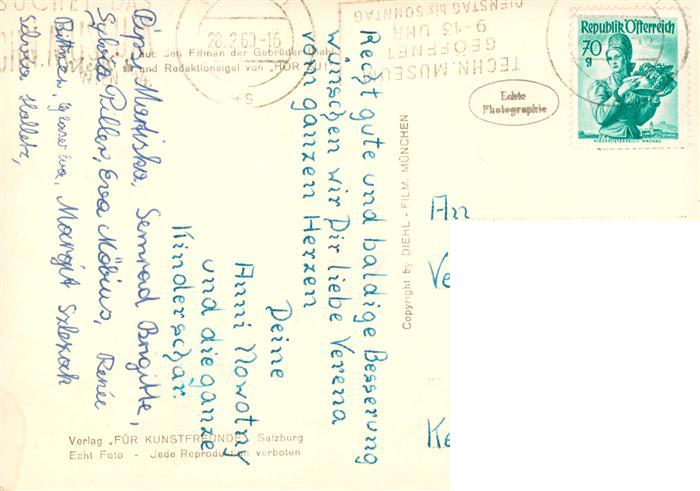 Recht gute und baldige Besserung
wünschen wir Dir liebe Verena
vom ganzen Herzen
Deine
Anni Nowotny
und die ganze
Kinderschar.
Martiska, Semrad Brigitte,
Sylvia Piller, Eva Möbius, Renée
Eva, Margit Szlezak
An
Ve
Ke
Republik Österreich
70
g
NIEDERÖSTERREICH WACHAU
Echte
Photographie
TECHN. MUSEUM
GEÖFFNET
9-13 UHR
DIENSTAG bis SONNTAG
28.2.60-16
aus den Filmen der Gebrüder Diehl
und Redaktionsigel von „HÖR ZU"
Copyright by DIEHL - FILM, MÜNCHEN
Verlag „FÜR KUNSTFREUNDE", Salzburg
Echt Foto - Jede Reproduktion verboten